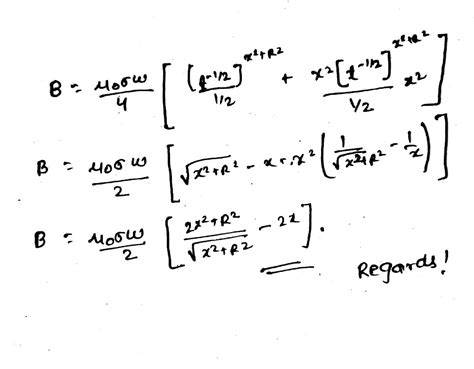 B = μ₀σω/4 [ [t^(-1/2)]^(x²+R²) / 1/2 + x² [t^(-1/2)]^(x²+R²) / 1/2 x² ]
B = μ₀σω/2 [ √(x²+R²) - x + x² ( 1/√(x²+R²) - 1/x ) ]
B = μ₀σω/2 [ (2x²+R²)/√(x²+R²) - 2x ].
Regards!